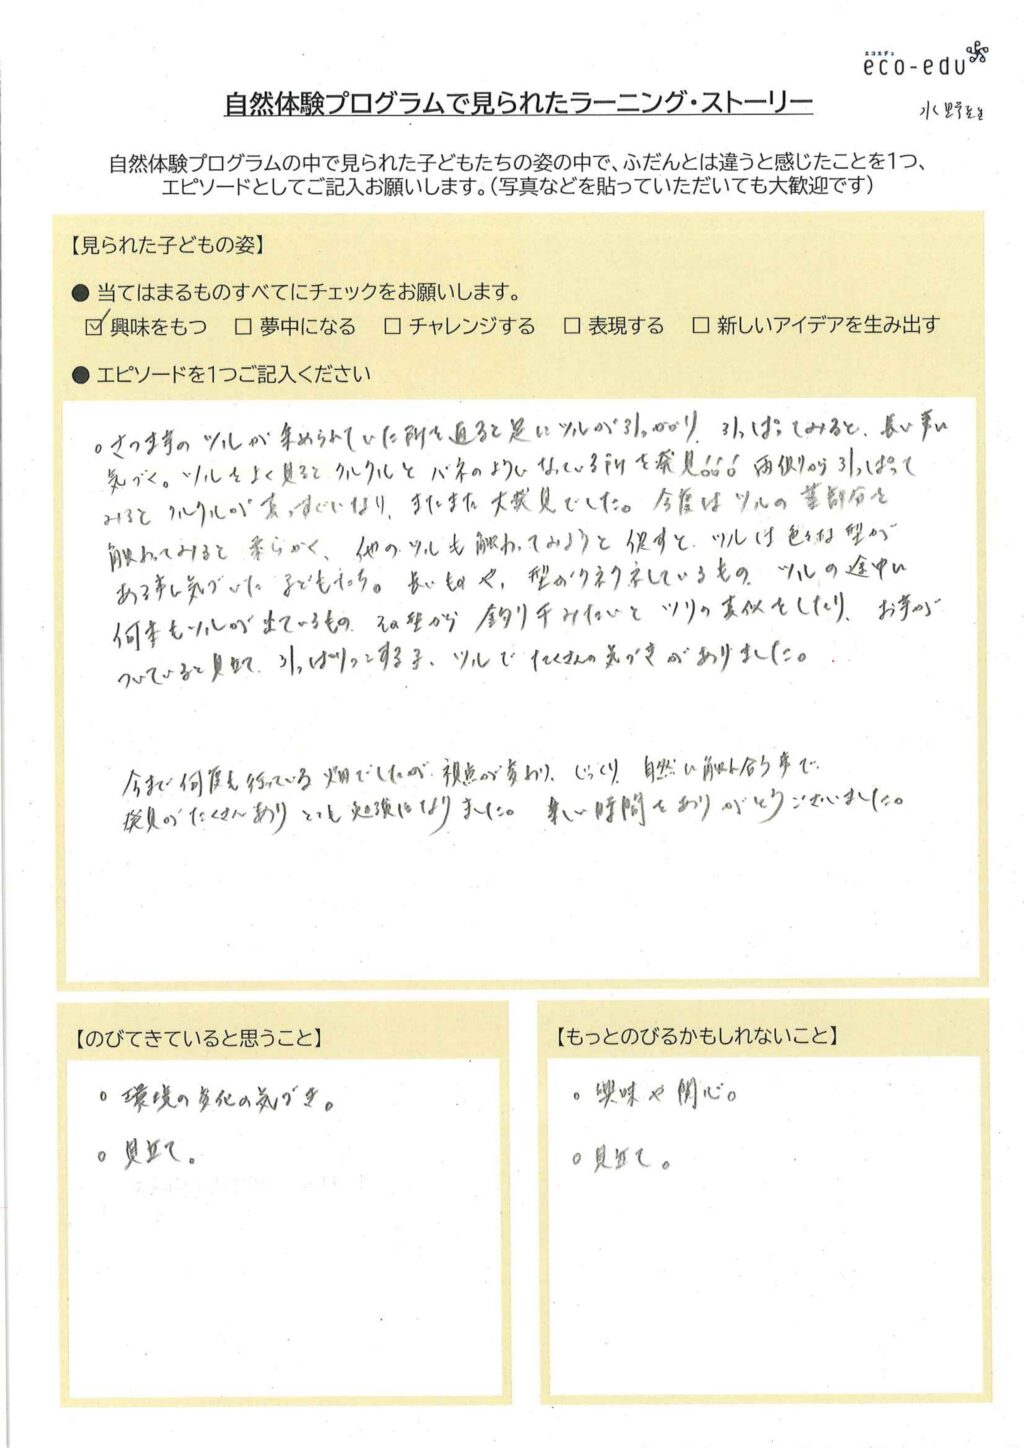 エコエデュ
eco-edu
自然体験プログラムで見られたラーニング・ストーリー
水野先生
自然体験プログラムの中で見られた子どもたちの姿の中で、ふだんとは違うと感じたことを1つ、
エピソードとしてご記入お願いします。(写真などを貼っていただいても大歓迎です)
【見られた子どもの姿】
● 当てはまるものすべてにチェックをお願いします。
☑ 興味をもつ □ 夢中になる □ チャレンジする □ 表現する □ 新しいアイデアを生み出す
● エピソードを1つご記入ください
○さつま芋のツルが集められていた所を通ると足にツルが引っかかり、引っぱってみると、長い事に
気づく。ツルをよく見るとクルクルとバネのようになっている所を発見!!! 両側から引っぱって
みるとクルクルが真っすぐになり、またまた大発見でした。今度はツルの葉部分を
触わってみると柔らかく、他のツルも触わってみようと促すと、ツルは色々な型が
ある事に気づいた子どもたち。長いものや、型がクネクネしているもの、ツルの途中に
何本もツルが出ているもの、その型から釣り竿みたいとツリの真似をしたり、お芋が
ついていると見立て、引っぱりっこする子、ツルでたくさんの気づきがありました。
今まで何度も行っている畑でしたが、視点が変わり、じっくり、自然に触れ合う事で、
発見がたくさんありとても勉強になりました。楽しい時間をありがとうございました。
【のびてきていると思うこと】
○ 環境の変化の気づき。
○ 見立て。
【もっとのびるかもしれないこと】
○ 興味や関心。
○ 見立て。